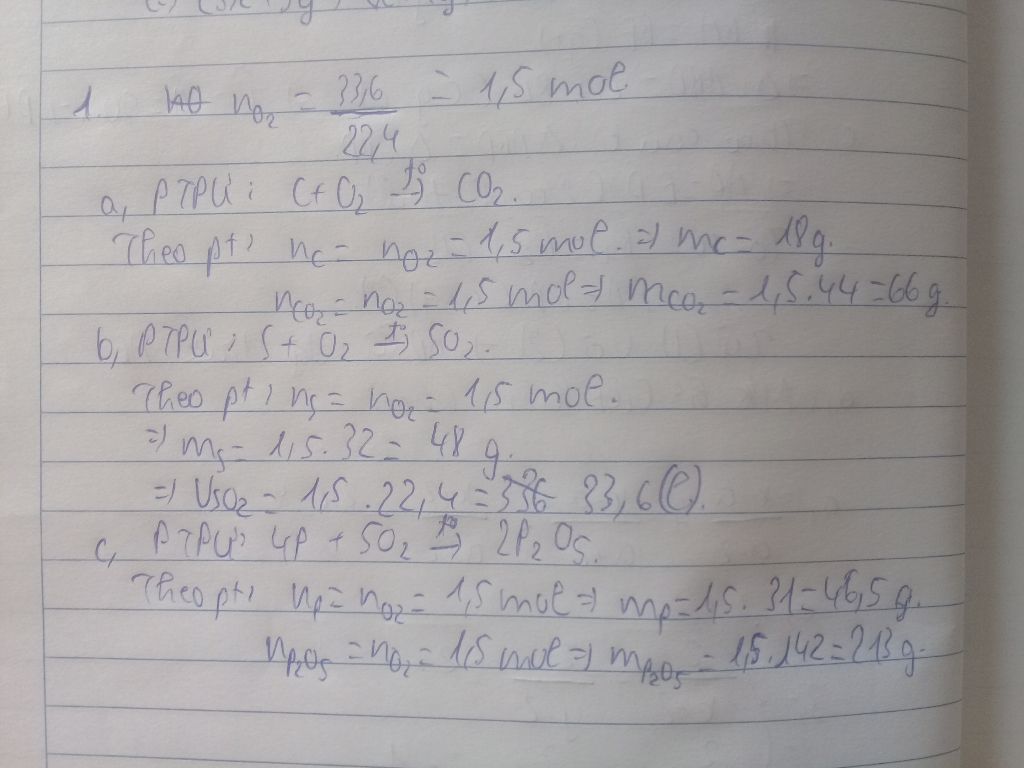 1. nO₂ = 33,6 / 22,4 = 1,5 mol
a, PTPƯ: C + O₂ t°→ CO₂.
Theo pt: nC = nO₂ = 1,5 mol. => mC = 18 g.
nCO₂ = nO₂ = 1,5 mol => mCO₂ = 1,5 . 44 = 66 g.
b, PTPƯ: S + O₂ t°→ SO₂.
Theo pt: nS = nO₂ = 1,5 mol.
=> mS = 1,5 . 32 = 48 g.
=> VSO₂ = 1,5 . 22,4 = 336 33,6 (l).
c, PTPƯ: 4P + 5O₂ t°→ 2P₂O₅.
Theo pt: nP = nO₂ = 1,5 mol => mP = 1,5 . 31 = 46,5 g.
nP₂O₅ = nO₂ = 1,5 mol => mP₂O₅ = 1,5 . 142 = 213 g.